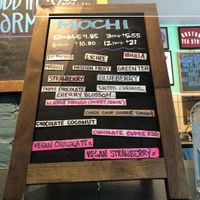 MOCHI
SINGLE 1.95 3 FOR $5.55
6 FOR 10.80 12 FOR $21
LYCHEE VANILLA
MANGO PASSION FRUIT GREEN TEA
STRAWBERRY BLUEBERRY
TRIPLE CHOCOLATE SALTED CARAMEL
CHERRY BLOSSOM
CHOCO CHIP COOKIE DOUGH
CHOCOLATE COCONUT
CHOCOLATE ESPRESSO
VEGAN CHOCOLATE
VEGAN STRAWBERRY
BOSTON
TEA STOP